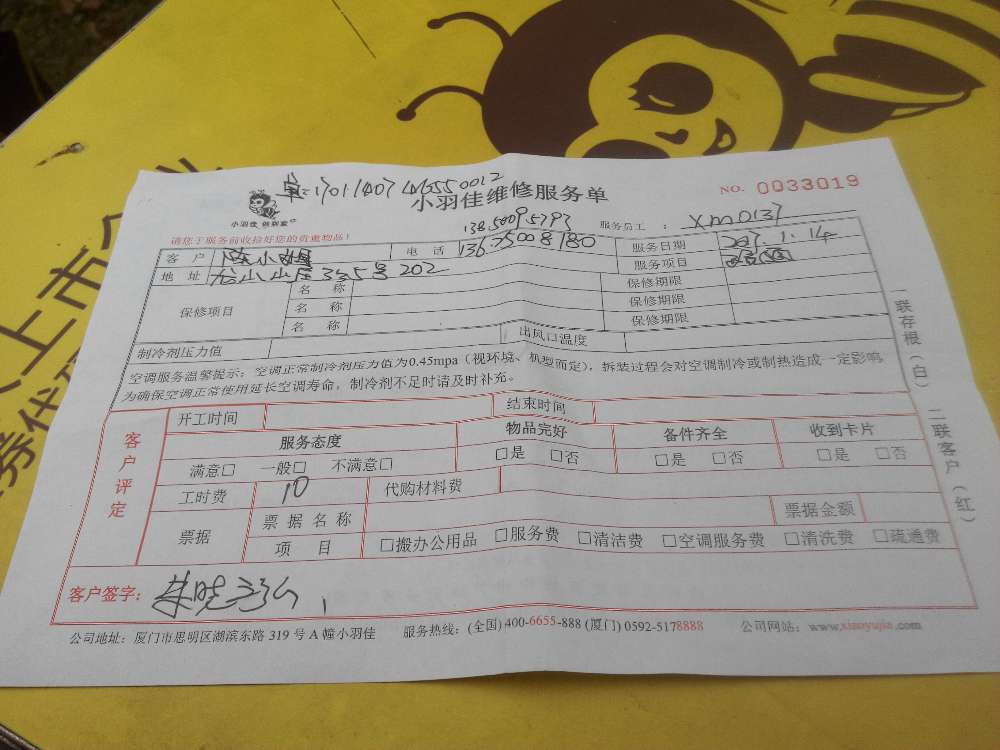 单:17011407465550012
小羽佳维修服务单
NO. 0033019
小羽佳 做到家
请您于服务前收捡好您的贵重物品!
138.5009.5793
服务员工 : XM0137
客 户 陈小姐 电 话 136.25008180 服务日期 2017.1.14
地 址 335号202 服务项目
保修项目 名 称 保修期限
名 称 保修期限
名 称 保修期限
制冷剂压力值 出风口温度
空调服务温馨提示:空调正常制冷剂压力值为0.45mpa(视环境、机型而定),拆装过程会对空调制冷或制热造成一定影响
为确保空调正常使用延长空调寿命,制冷剂不足时请及时补充。
客户评定
开工时间 结束时间
服务态度 物品完好 备件齐全 收到卡片
满意□ 一般□ 不满意□ □是 □否 □是 □否 □是 □否
工时费 10 代购材料费
票据 票 据 名 称 票据金额
项 目 □搬办公用品 □服务费 □清洁费 □空调服务费 □清洗费 □疏通费
客户签字:
公司地址:厦门市思明区湖滨东路 319 号 A 幢小羽佳 服务热线:(全国) 400-6655-888 (厦门) 0592-5178888 公司网站:www.xiaoyujia.com
一联存根(白)
二联客户(红)